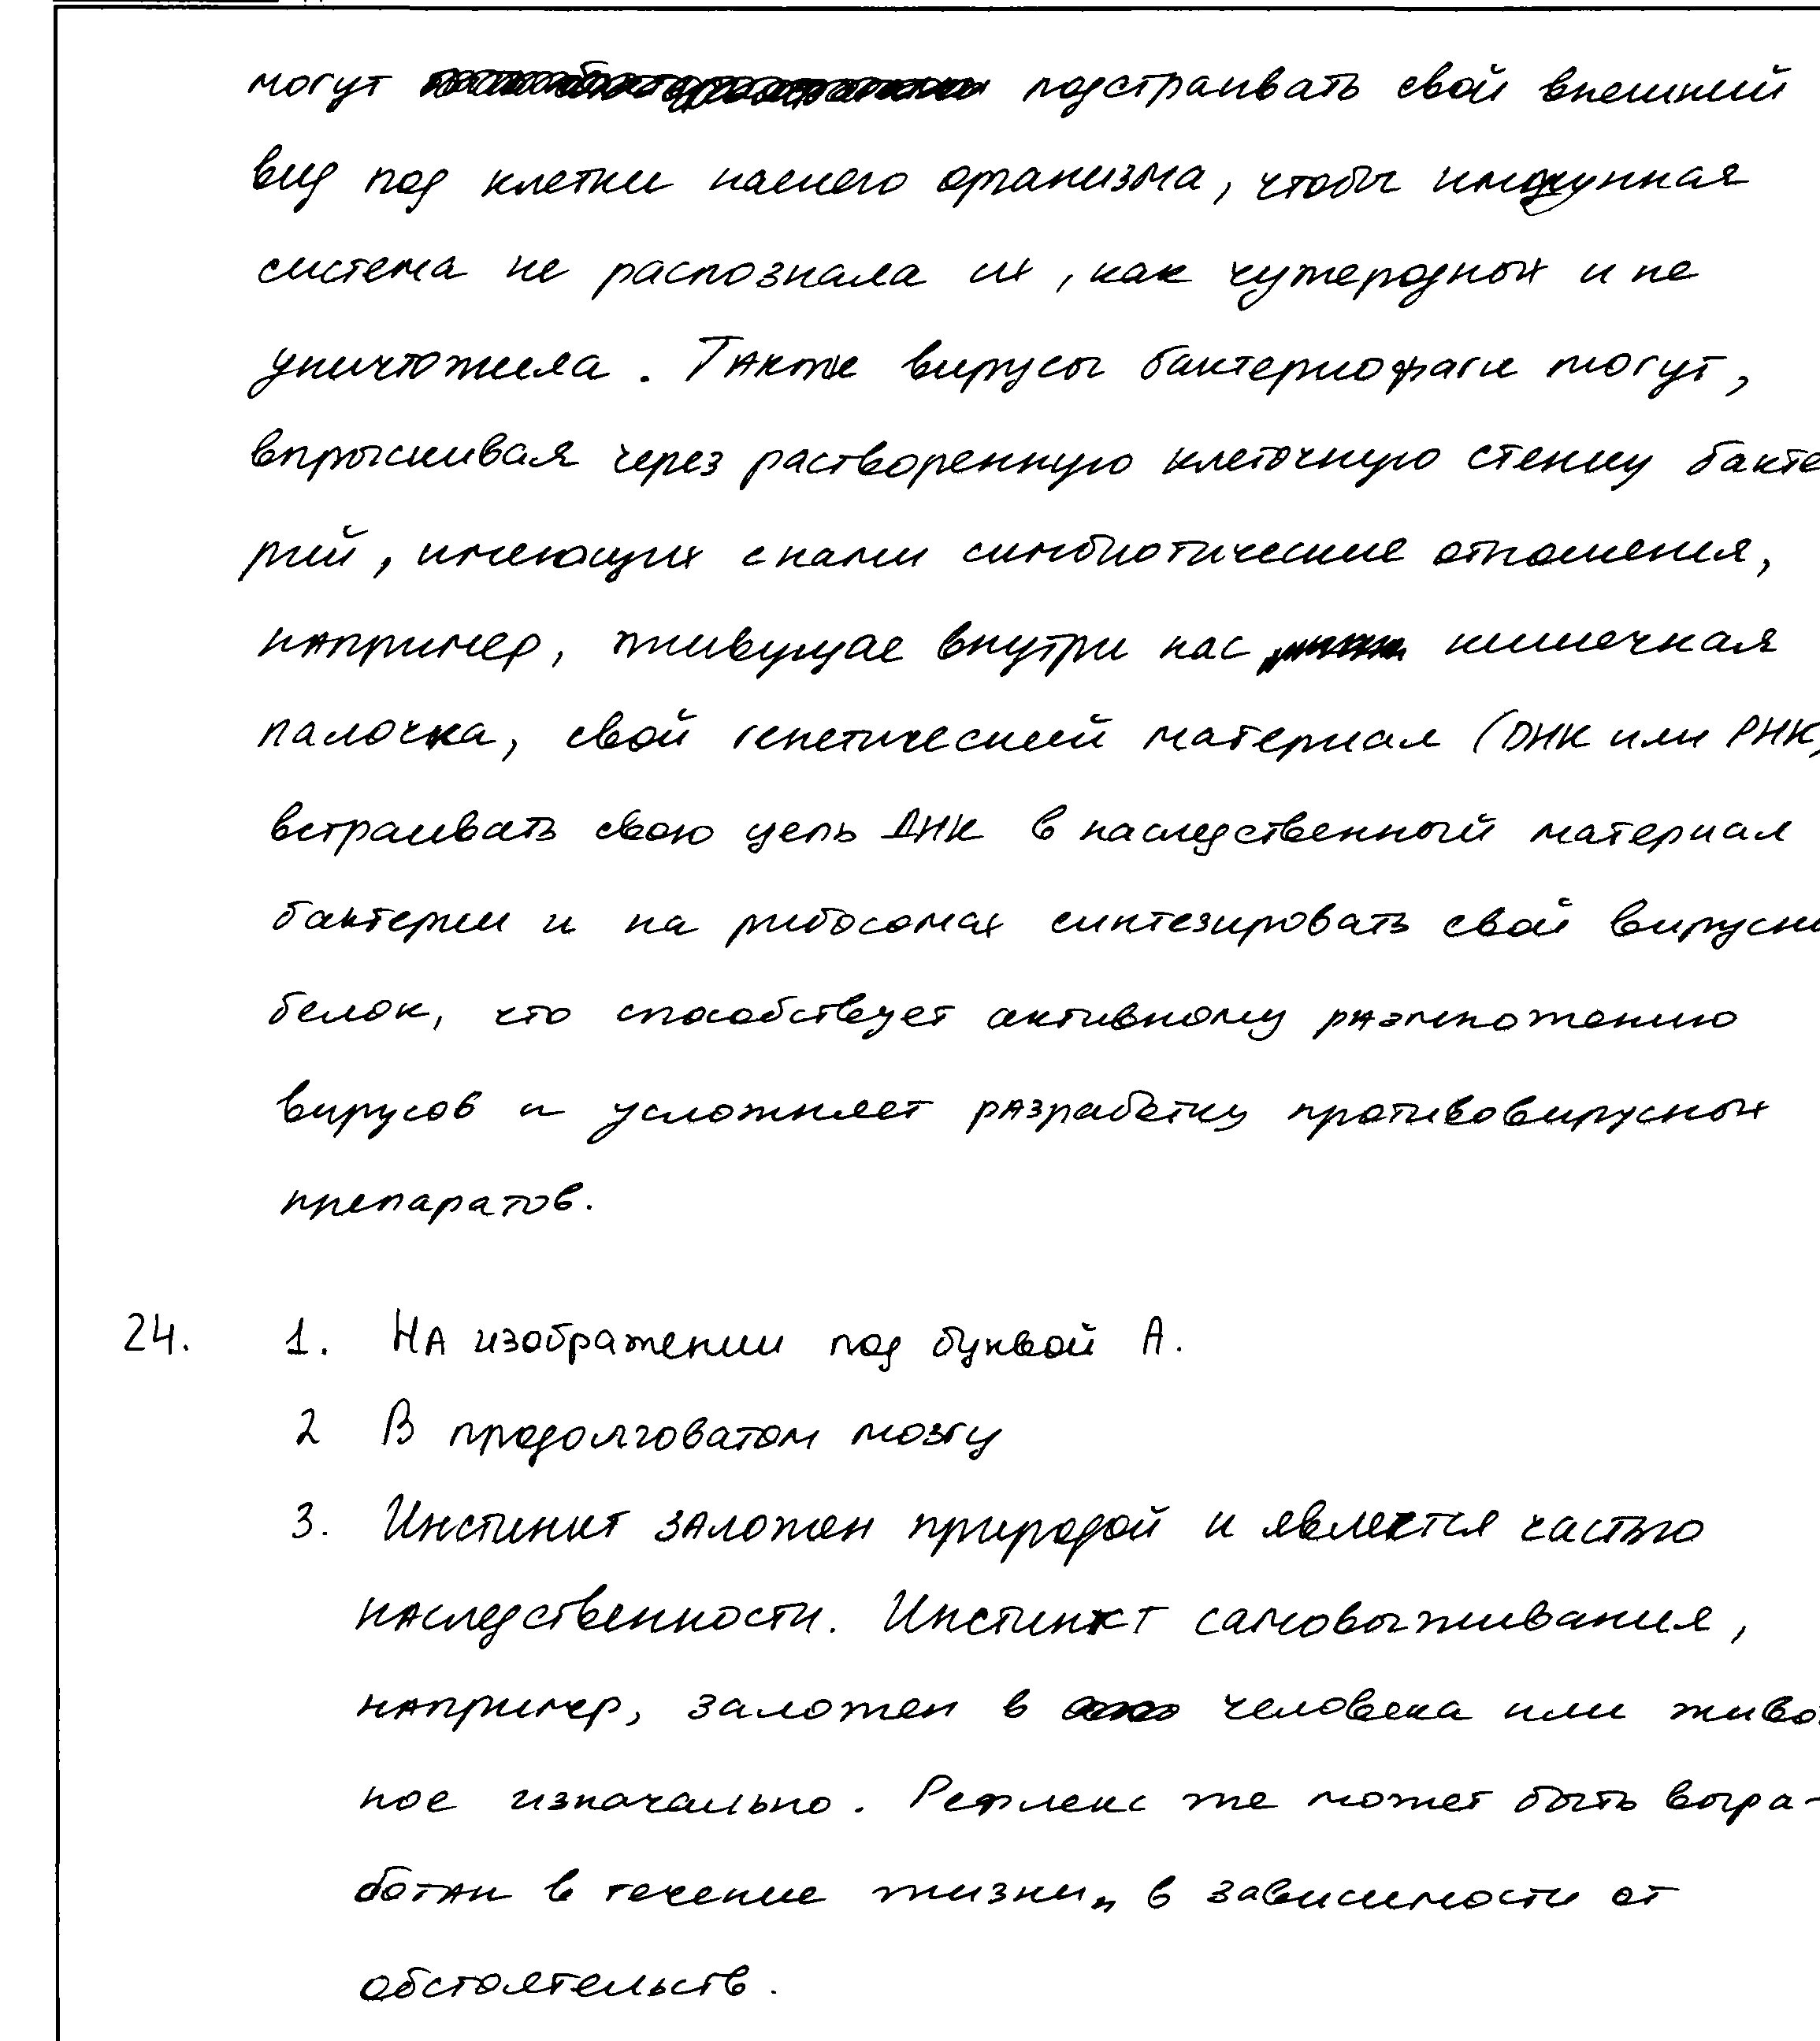 могут подстраивать свой внешний
вид под клетки нашего организма, чтобы иммунная
система не распознала их, как чужеродных и не
уничтожила. Также вирусы бактериофаги могут,
впрыскивая через растворенную клеточную стенку бакте
рий, имеющих с нами симбиотические отношения,
например, живущае внутри нас кишечная
палочка, свой генетический материал (ДНК или РНК)
встраивать свою цепь ДНК в наследственный материал
бактерии и на рибосомах синтезировать свой вирусны
белок, что способствует активному размножению
вирусов и усложняет разработку противовирусных
препаратов.
24. 1. На изображении под буквой А.
2 В продолговатом мозгу
3. Инстинкт заложен природой и является частью
наследственности. Инстинкт самовыживания,
например, заложен в человека или живо
ное изначально. Рефлекс же может быть выра-
ботан в течение жизни, в зависимости от
обстоятельств.